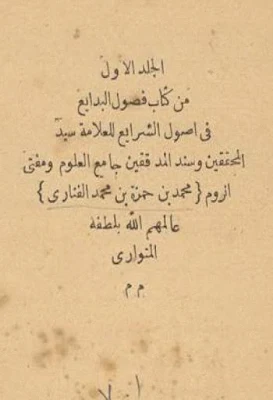 الجلد الاول
من كتاب فصول البدايع
فى اصول الشرايع للعلامة سيد
المحققين وسند المدققين جامع العلوم ومفتى
الروم {محمد بن حمزة بن محمد الفنارى}
عالمهم الله بلطفه
المتوارى
م م